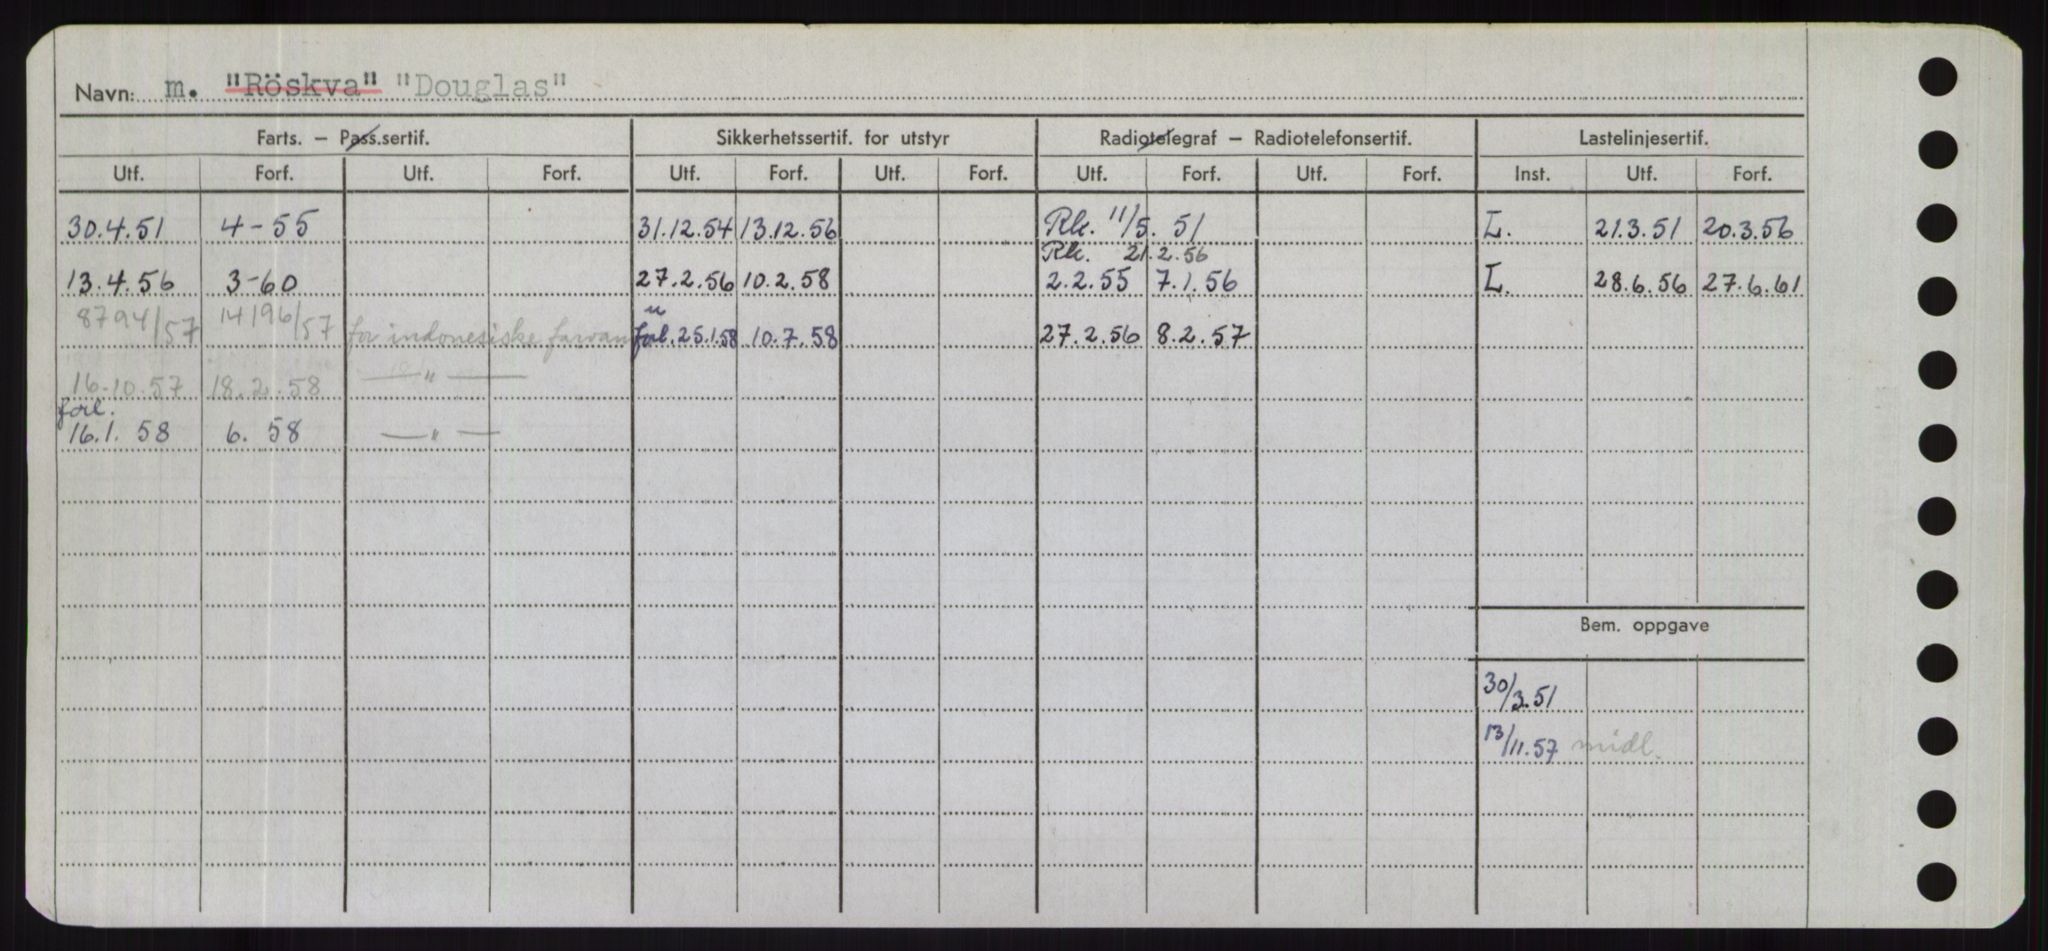 Navn: m. "Röskva" "Douglas"
Farts. – Pass.sertif. Sikkerhetssertif. for utstyr Radiotelegraf – Radiotelefonsertif. Lastelinjesertif.
Utf. Forf. Utf. Forf. Utf. Forf. Utf. Forf. Utf. Forf. Utf. Forf. Inst. Utf. Forf.
30.4.51 4-55 31.12.54 13.12.56 Rk. 11/5. 51 L. 21.3.51 20.3.56
Rk. 21.2.56
13.4.56 3-60 27.2.56 10.2.58 2.2.55 7.1.56 L. 28.6.56 27.6.61
8794/57 14196/57 for indonesiske forl. 25.1.58 10.7.58 27.2.56 8.2.57
16.10.57 18.2.58 — " —
forl.
16.1.58 6.58 — " —
Bem. oppgave
30/3.51
13/11.57 midl.